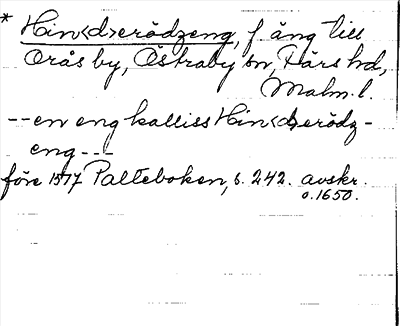 * Hin<d>erödzeng, f. äng till
Orås by, Östraby sn, Färs hd,
Malm. l.
-- en eng kalliss Hin<d>erödz-
eng ---
före 1517 Palteboken, s. 242. avskr.
o. 1650.